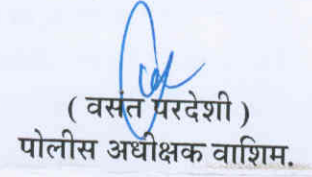 ( वसंत परदेशी )
पोलीस अधीक्षक वाशिम.